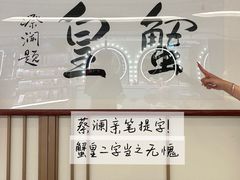 蟹皇
蔡澜题
蔡澜亲笔提字!
蟹皇二字当之无愧